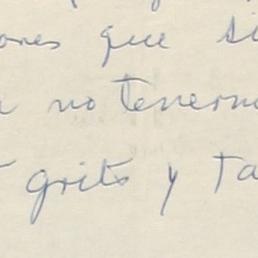 ones que si
no tenerm
grito y ta